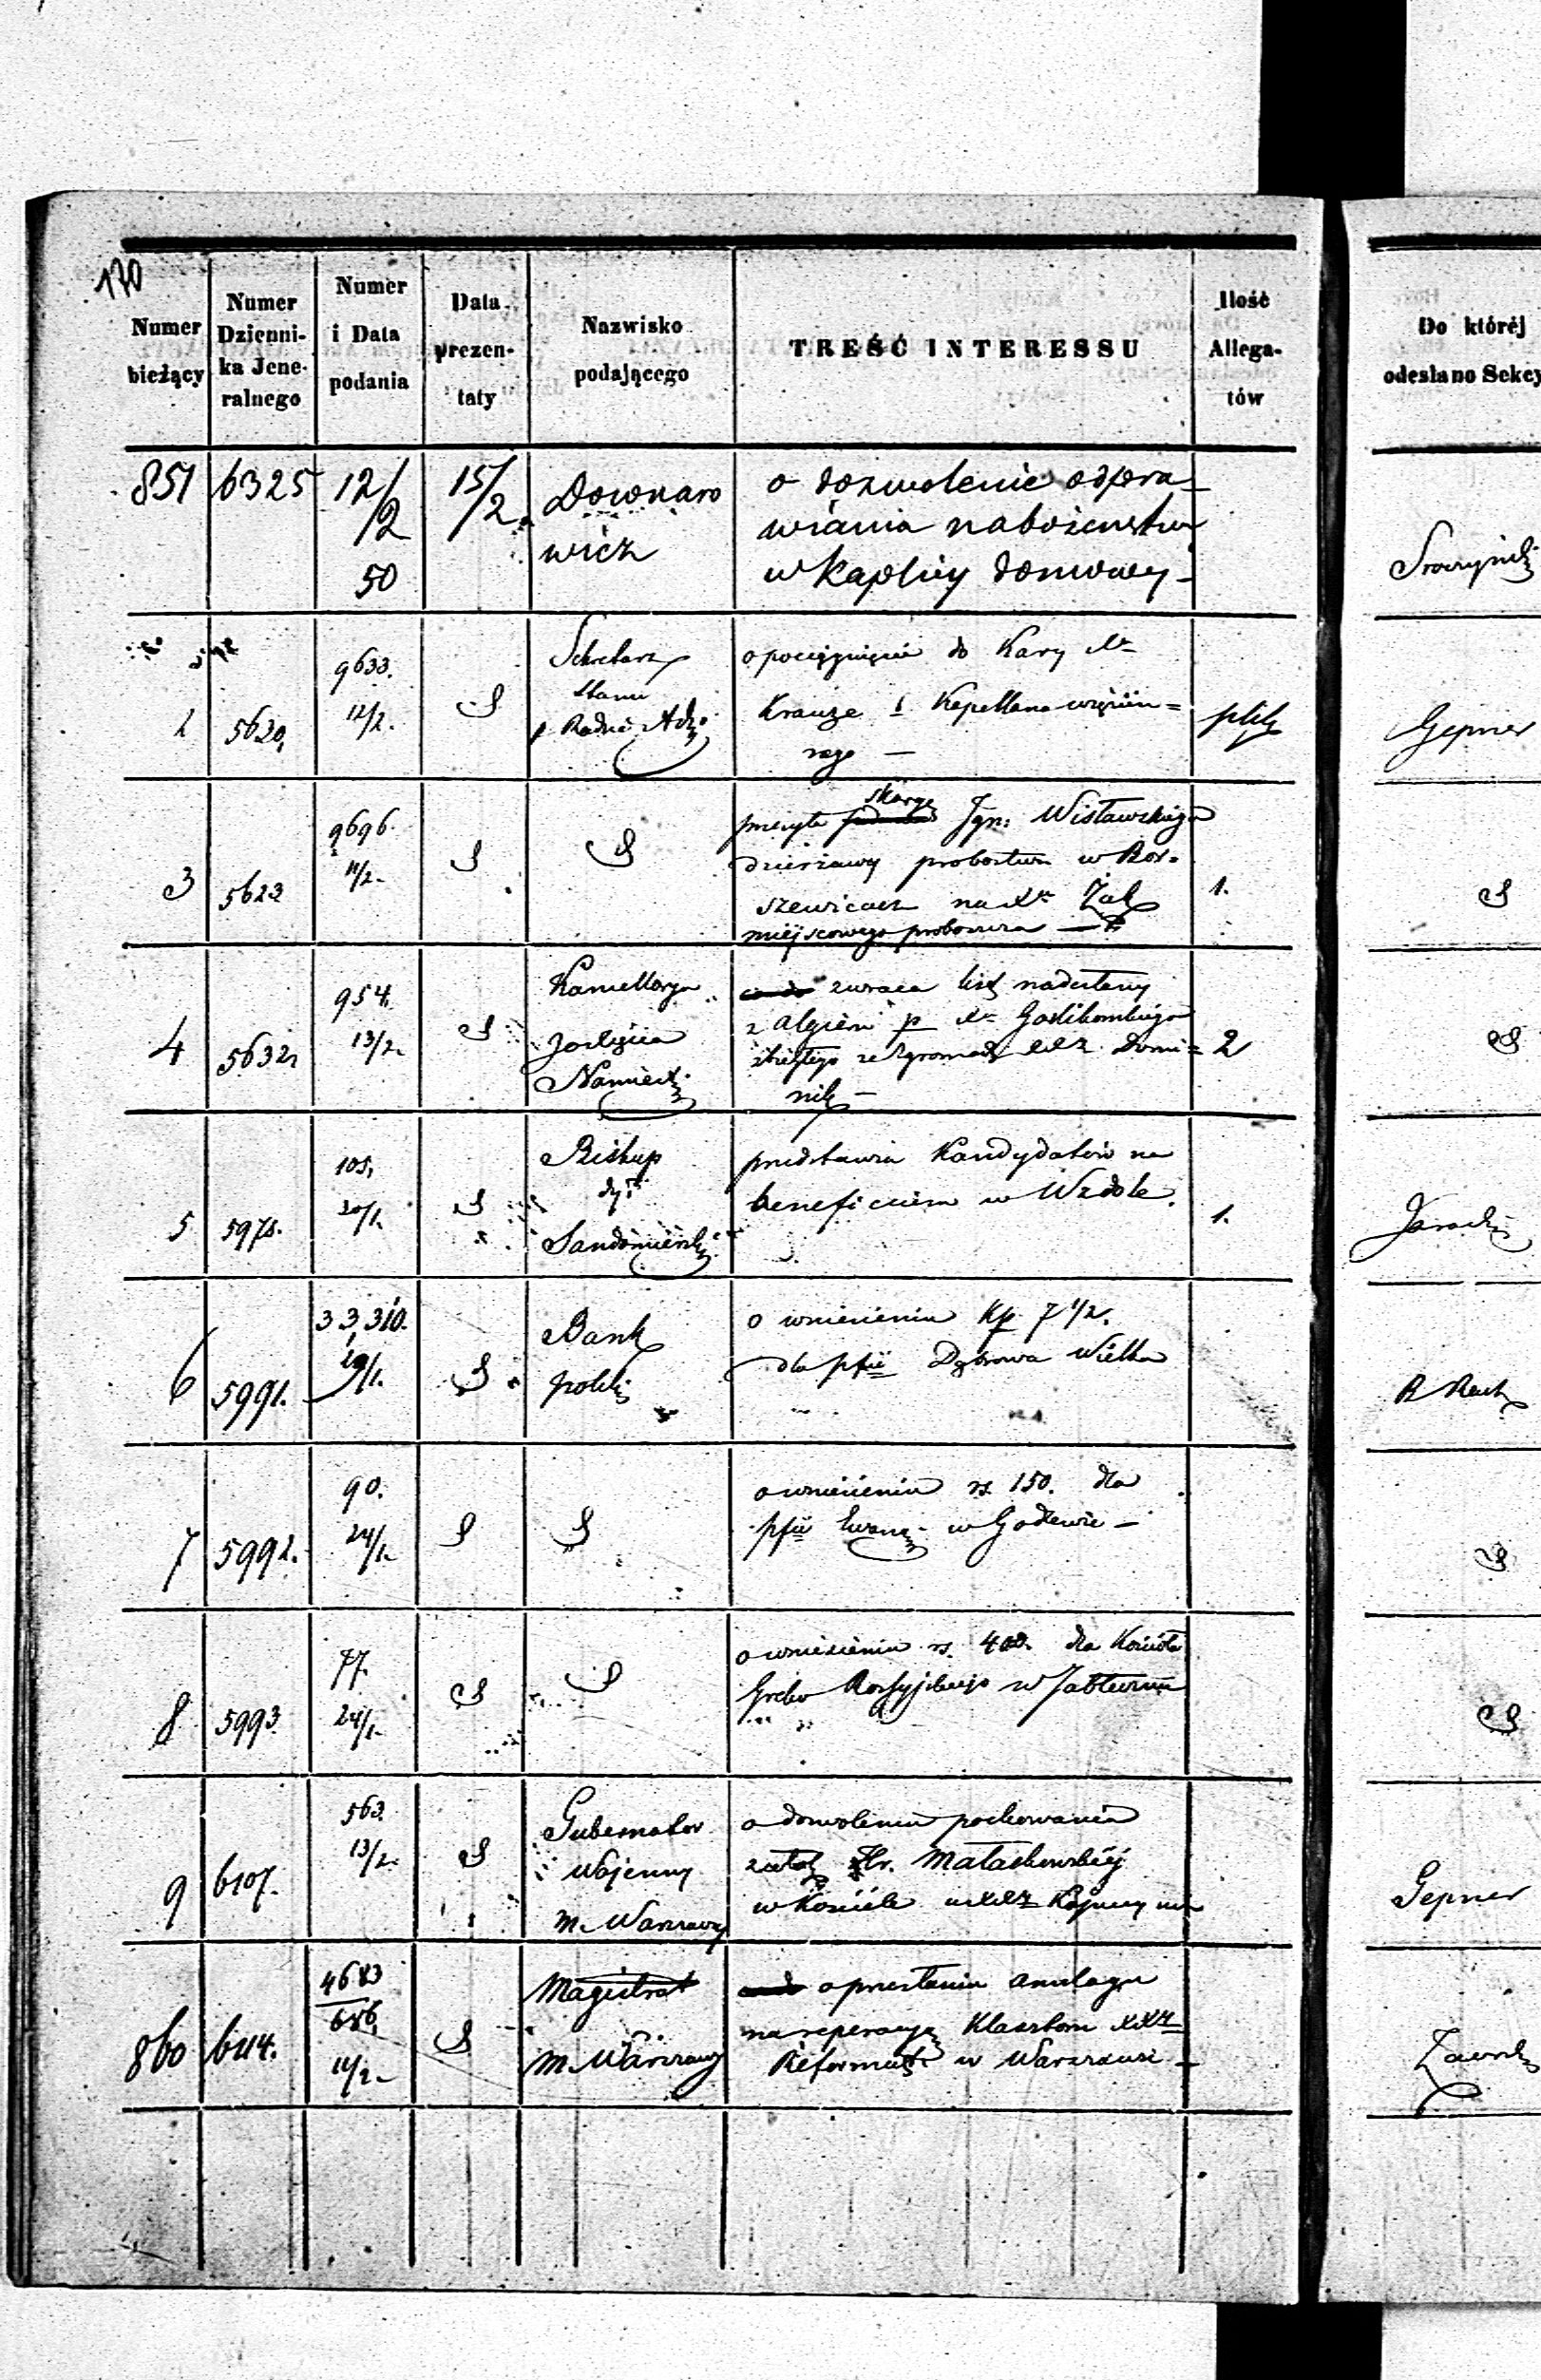 170
Numer bieżący
Numer Dzienni-ka Jene-ralnego
Numer i Data podania
Data prezen-taty
Nazwisko podającego
TREŚĆ INTERESSU
Ilość Allega-tów
Do któréj odesłano Sekcy
851 6325 12/2 50 15/2 Downaro
wicz
o dozwolenie odpra-
wiania nabożeństw
w Kaplicy domowey-
9633.
12/2. 5620,
Sekretarz
Stanu
o pociągnięcie do Kary Xa
Krauze Kapellana więzien=
nego —
Gepner
3 5623 9696.
11/2.
skargę
przesyła Ign: Wisławskiego
dzierżawcy probostwa w Bor=
szewicach na Xa Żak
miejscowego proboszcza —
1.
4 5632 954.
13/2.
Kancellarya
Namiest.
zwraca list nadesłany
z Algieru p Xa
zbiegłego ze Zgromadz XXX Domi=
nik —
2
5 5975. 105,
20/1.
Biskup
dyi
Sandomierski
przedstawia Kandydatów na
beneficium w Wzdole.
1.
6 5991. 33,310.
19/1.
Bank
polski
o wniesieniu Kp 7 1/2.
dla pfii Dąbrowa Wielka
R Rach
7 5992. 90.
24/1.
o wniesieniu rs. 150. dla
pfii Ewang. w Godlewie —
8 5993 77.
24/1.
o wniesieniu rs. 400. dla Kościoła
Greko Rossyjskiego w Jabłecznie
9 6107. 563.
13/2.
Gubernator
Wojenny
m. Warszawy
o dozwoleniu pochowania
zwłok Hr. Małachowskiéj
w Kościele
Gepner
860 6114. 4683
686,
11/2.
Magistrat
m. Warszawy
o przesłaniu anszlagu
na reperacyę Klasztoru XXX
Reformatów w Warszawie —